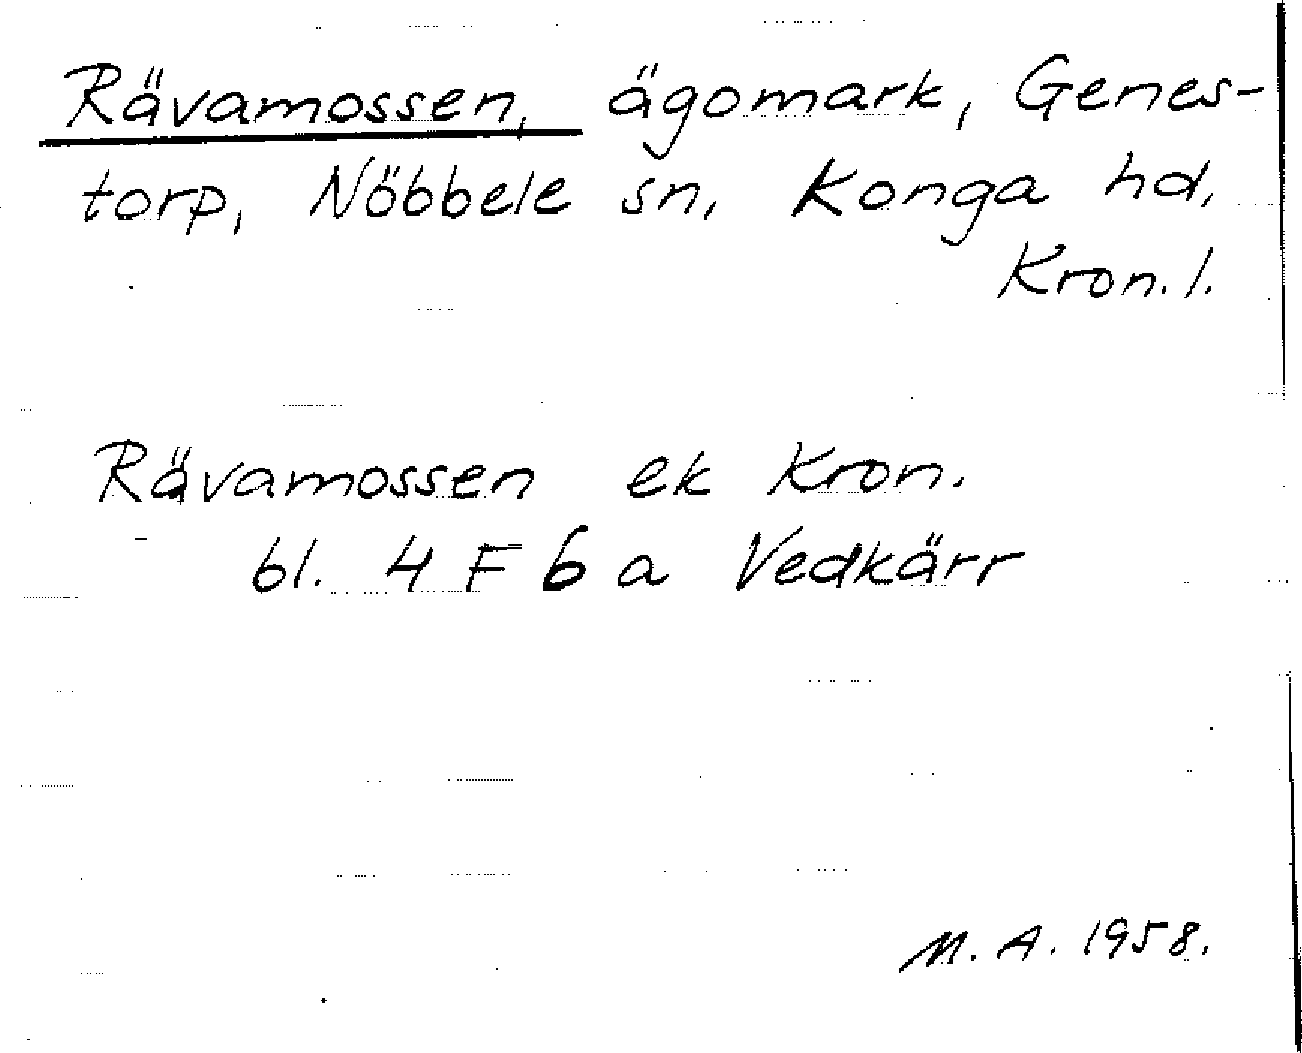 Rävamossen, ägomark, Genes-
torp, Nöbbele sn, Konga hd,
Kron. l.
Rävamossen ek Kron.
bl. 4 F 6 a Vedkärr
M. A. 1958.